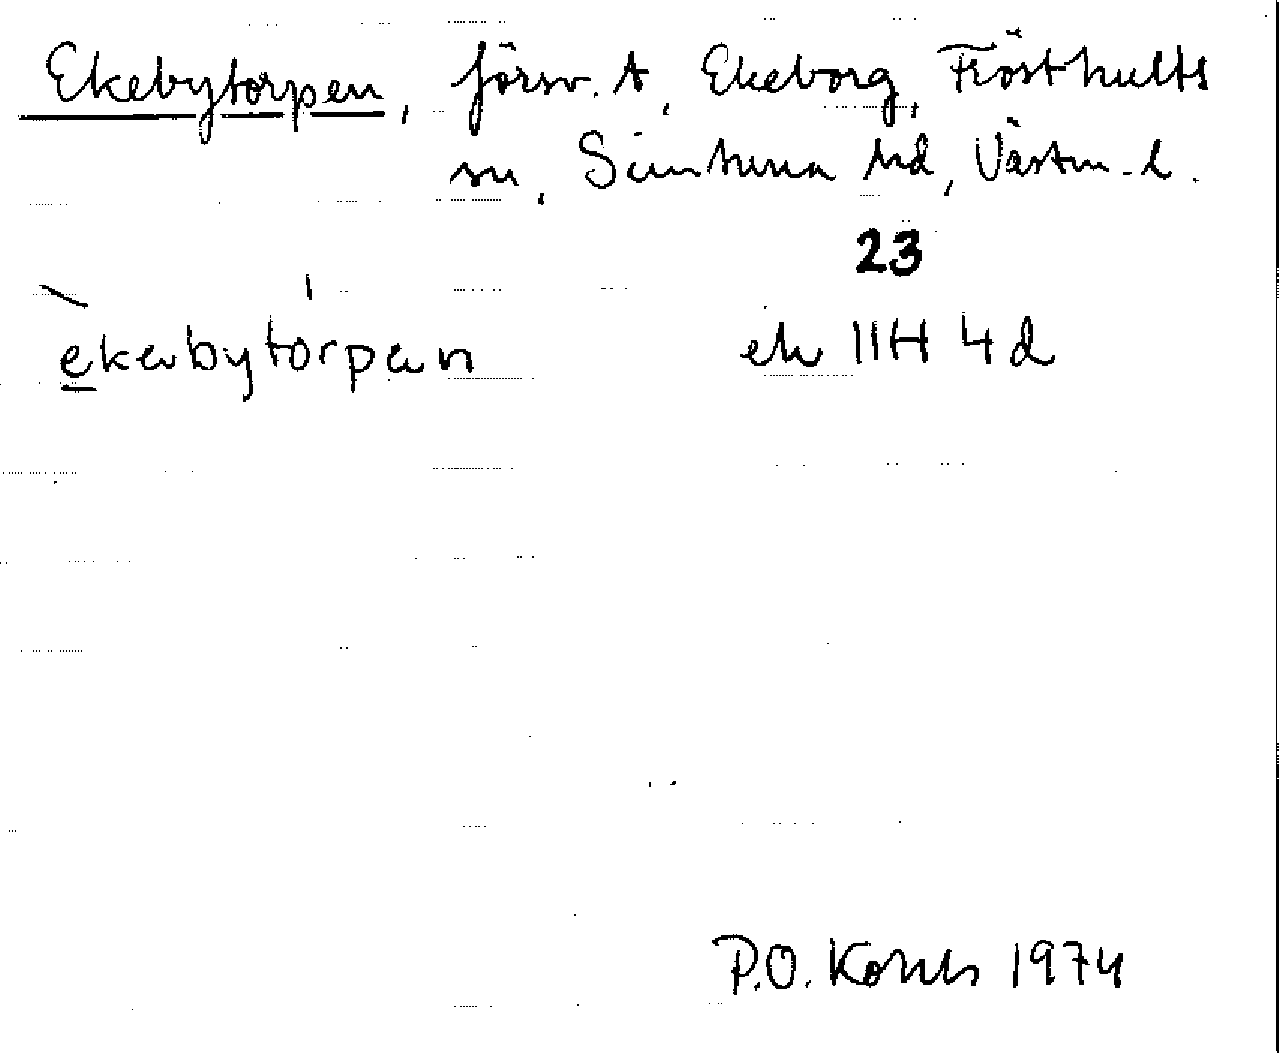 Ekebytorpen, försv. t, Ekeborg, Frösthults
sn, Simtuna hd, Västm. l.
23
ekəbytórpan
ek 11H 4d
P.O. 1974